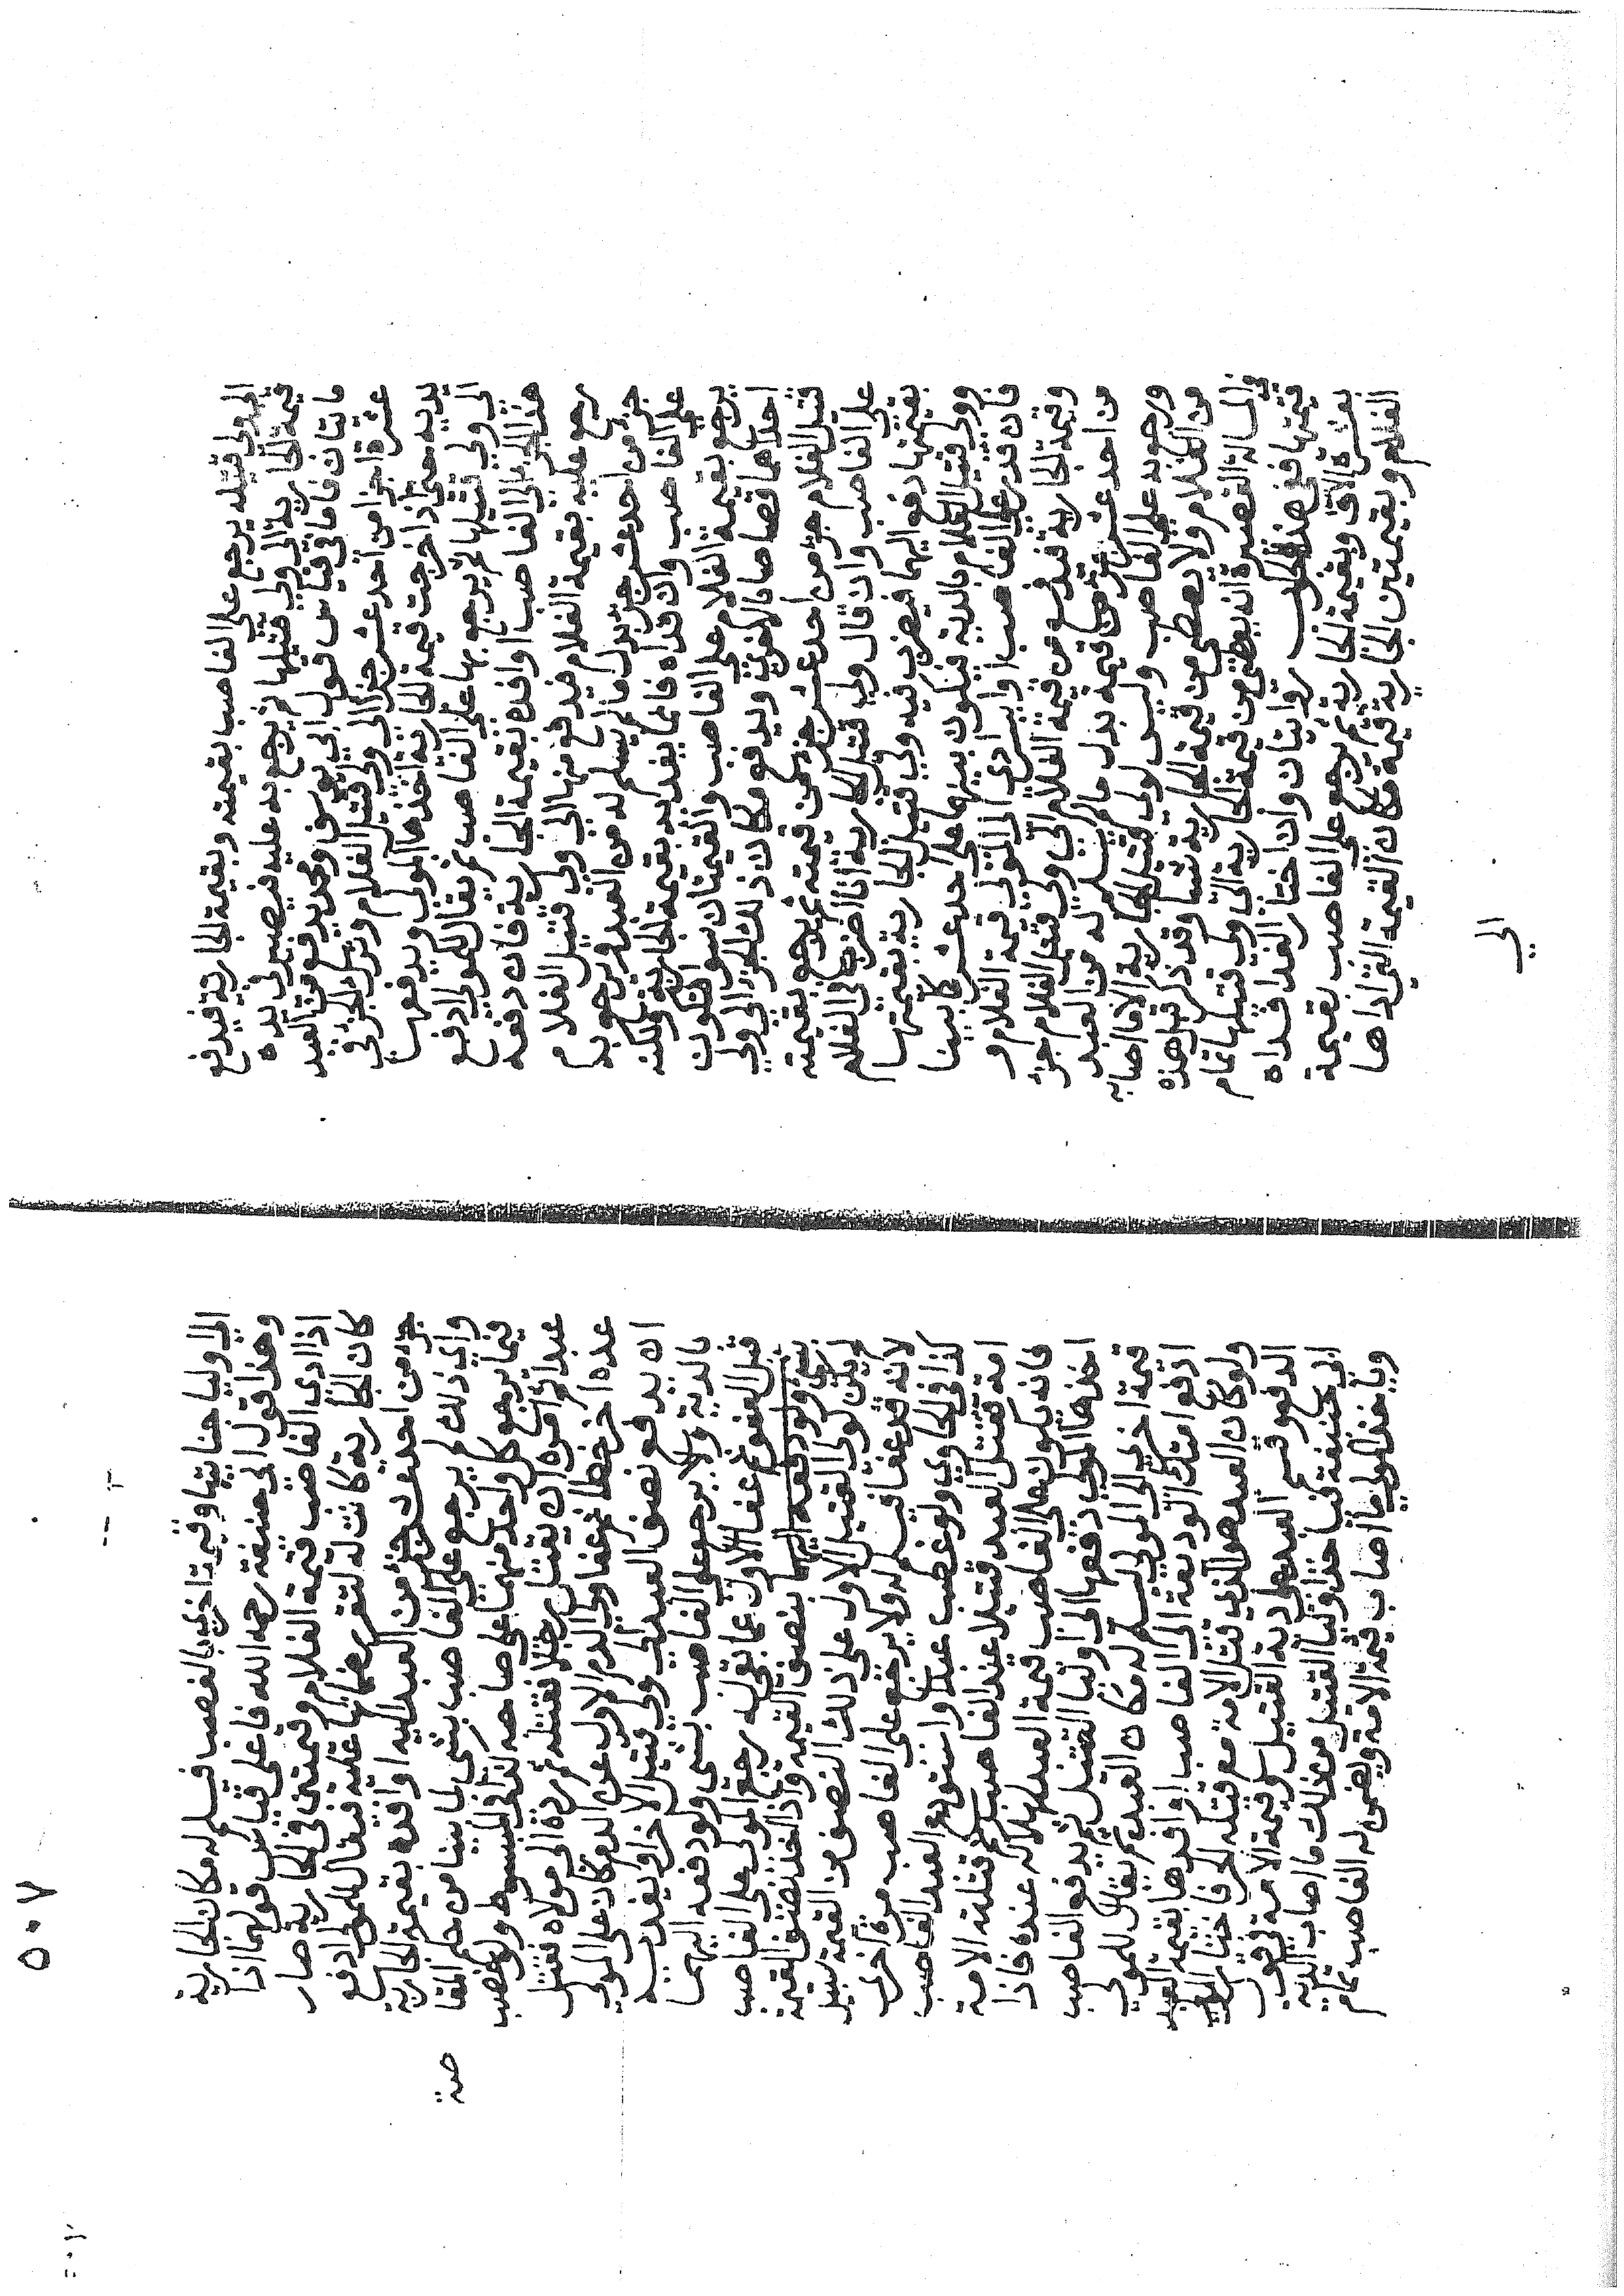 الى ولي قتيله يرجع على الغاصب بقيمته وبقيمة الجارية فيدفع
قيمة الجارية الى ولي قتيلها ثم يرجع به عليه فيصير في يده
مايتان فاما في قياس قول ابي يوسف ومحمد يدفع من العبد
عشرة اجزا من احد عشر جزا الى ولي قتيل الغلام ويترك الجزء في
يديه حتى اذا خرجت قيمة الجارية اخذها المولى ويدفعها
الى ولي قتيلها ثم يرجع بها على الغاصب ثم يقال للمولى ادفع
هذا الجزء الى الغاصب او افده بقيمة الجارية فان دفعه
رجع عليه بقيمة الغلام فيدفع منها الى ولي قتيل الغلام
جزء من احد عشر جزء بدل ما لم يسلم له من العبد ويرجع به
على الغاصب وان فداه فانما يفديه بقيمة الجارية ولكنه
يرجع بقيمة الغلام على الغاصب والقيمتان سوا فتكون
احداهما قصاصا بالاخرى ويدفع مكان ذلك الجزء الى ولي
قتيل الغلام جزء من احد عشر جزء من قيمته ثم يرجع بقيمته
على الغاصب وان قال ولي قتيل الجارية انا اضرب في الغلام
بقيمتها دفع اليهما فيضرب فيه ولي قتيل الجارية بقيمتها
وولي قتيل الغلام بالدية فيكون بينهما على احد عشر كما بينا
فان قدر على الغاصب او ايسر ادى الى المولى قيمة الغلام و
وقيمة الجارية فيدفع من قيمة الغلام الى ولي قتيل الغلام جزء
من احد عشر جزء من قيمته بدل ما لم يسلم له من العبد
ويرجع به على الغاصب وليس لولي قتيل الجارية الا ما اصابه
من الغلام ولا يعطى من قيمة الجارية شيا وقد ذكر قبل هذه
المسالة القصيرة انه يعطى من قيمة الجارية الى ولي قتيلها تمام
قيمتها ففي هذه الجواب روايتان وان اختار الفدا فداه
بعشرة الاف وبقيمة الجارية ثم يرجع على الغاصب بقيمة
الغلام وبقيمتين الجارية قيمة مكان القيمة التي اداها
الى
٥٠٧
الى وليا جنايتها وقيمة اخرى بالغصب فيسلم له مكان الجارية
وهذا قول ابي حنيفة رحمه الله فاما على قياس قولهما اذا
اذا ادى الغاصب قيمة الغلام وقيمتين في الجارية صار
كان الجارية كانت له لتقرر ضمانها عليه فيقال للمولى ادفع
جزء من احد عشر جزء من العبد اليه او افده بقيمة الجارية
واي ذلك لم يرجع على الغاصب بشي لما بينا من حكم المقا
صة
فيما يرجع كل واحد منهما على صاحبه كذا في المبسوط ولو غصب
عبدا ثم امره ان يقتل رجلا فقتله ثم رده الى مولاه فقتل
عنده اخر خطا ثم عفا ولي الدم الاول عن الدم كان على المولى
ان يدفع نصف العبد الى ولي قتيل الاخر او يفديه
بالدية ولا يرجع على الغاصب بشي ولو دفعه اليهما
قبل العفو ثم عفا الاول عما بقي له رجع المولى على الغاصب
بشي ولو دفعه اليهما بنصف القيمة واذا اخذ نصف القيمة
لم يكن لولي القتيل الاول على ذلك النصف من القيمة سبيل
لانه قد عفا فيسلم له ولا يرجع على الغاصب مرة اخرى
كذا في الحاوي ولو غصب عبدا واستودع العبد الغاصب
امة فقتل العبد قتيلا عند الغاصب ثم قتلته الامة
فانه يكون على الغاصب قيمة العبد لهلاكه عنده فاذا
اخذها المولى دفعها الى اوليا القتيل ثم يدفع الغاصب
قيمة اخرى الى المولى ليسلم له مكان العبد ثم يقال للمولى
ادفع امتك الوديعة الى الغاصب او افدها بقيمة العبد
ولو كان العبد هو الذي قتل الامة مع قتله الحر فاختار المولى
الدفع قسم العبد على دية القتيل وقيمة الامة في قول
ابي حنيفة فياخذ اوليا القتيل من ذلك ما اصاب الدية
وياخذ المولى ما اصاب قيمة الامة ويضمن له الغاصب تمام